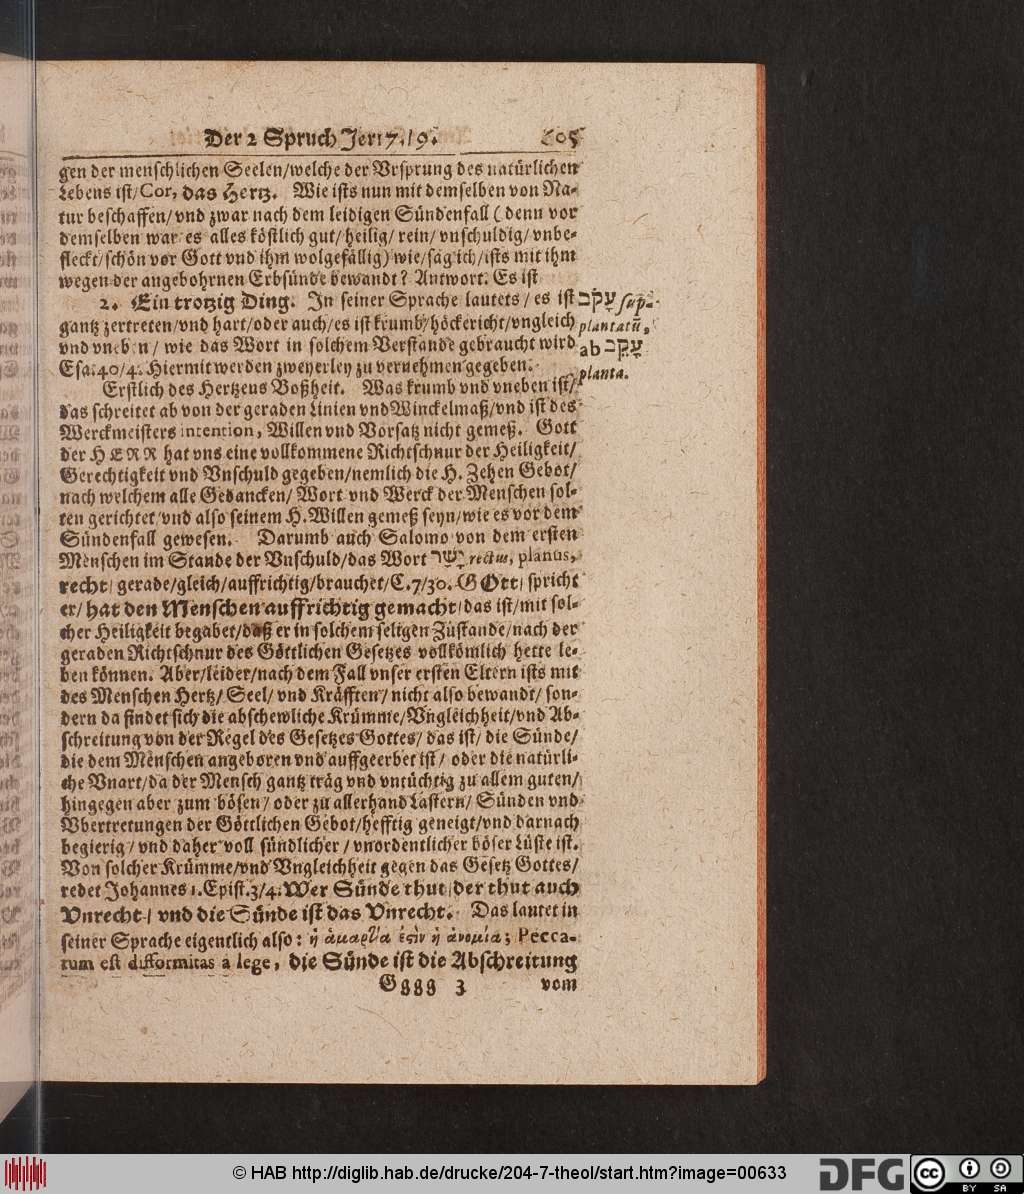 Der 2 Spruch Jer 17.19. 605
gen der menschlichen Seelen/welche der Vrsprung des natürlichen
Lebens ist/Cor, das Hertz. Wie ists nun mit demselben von Na-
tur beschaffen/vnd zwar nach dem leidigen Sündenfall (denn vor
demselben war es alles köstlich gut/heilig/rein/vnschuldig/vnbe-
fleckt/schön vor Gott vnd ihm wolgefällig) wie/sag ich/ists mit ihm
wegen der angebohrnen Erbsünde bewandt? Antwort. Es ist
2. Ein trotzig Ding. In seiner Sprache lautets/es ist עָקֹב sup-
gantz zertreten/vnd hart/oder auch/es ist krumb/höckericht/vngleich plantatũ,
vnd vneben/wie das Wort in solchem Verstande gebraucht wird ab עָקֵב
Esa.40/4. Hiermit werden zweyerley zu vernehmen gegeben. planta.
Erstlich des Hertzens Boßheit. Was krumb vnd vneben ist/
das schreitet ab von der geraden Linien vnd Winckelmaß/vnd ist des
Werckmeisters intention, Willen vnd Vorsatz nicht gemeß. Gott
der HERR hat vns eine vollkommene Richtschnur der Heiligkeit/
Gerechtigkeit vnd Vnschuld gegeben/nemlich die H. Zehen Gebot/
nach welchem alle Gedancken/Wort vnd Werck der Menschen sol-
ten gerichtet vnd also seinem H. Willen gemeß seyn/wie es vor dem
Sündenfall gewesen. Darumb auch Salomo von dem ersten
Menschen im Stande der Vnschuld/das Wort יָשָׁר rectus, planus,
recht/gerade/gleich/auffrichtig/brauchet/C.7/30. GOtt/spricht
er/hat den Menschen auffrichtig gemacht/das ist/mit sol-
cher Heiligkeit begabet/daß er in solchem seligen Zustande/nach der
geraden Richtschnur des Göttlichen Gesetzes vollkömlich hette le-
ben können. Aber/leider/nach dem Fall vnser ersten Eltern ists mit
des Menschen Hertz/Seel/vnd Kräfften/nicht also bewandt/son-
dern da findet sich die abschewliche Krümme/Vngleichheit/vnd Ab-
schreitung von der Regel des Gesetzes Gottes/das ist/die Sünde/
die dem Menschen angeboren vnd auffgeerbet ist/oder die natürli-
che Vnart/da der Mensch gantz träg vnd vntüchtig zu allem guten/
hingegen aber zum bösen/oder zu allerhand Lastern/Sünden vnd
Vbertretungen der Göttlichen Gebot/hefftig geneigt/vnd darnach
begierig/vnd daher voll sündlicher/vnordentlicher böser Lüste ist.
Von solcher Krümme/vnd Vngleichheit gegen das Gesetz Gottes/
redet Johannes 1.Epist.3/4. Wer Sünde thut/der thut auch
Vnrecht/vnd die Sünde ist das Vnrecht. Das lautet in
seiner Sprache eigentlich also: ἡ ἁμαρτία ἐστὶν ἡ ἀνομία; Pecca-
tum est difformitas a lege, die Sünde ist die Abschreitung
Gggg 3 vom
© HAB http://diglib.hab.de/drucke/204-7-theol/start.htm?image=00633
DFG
cc BY SA